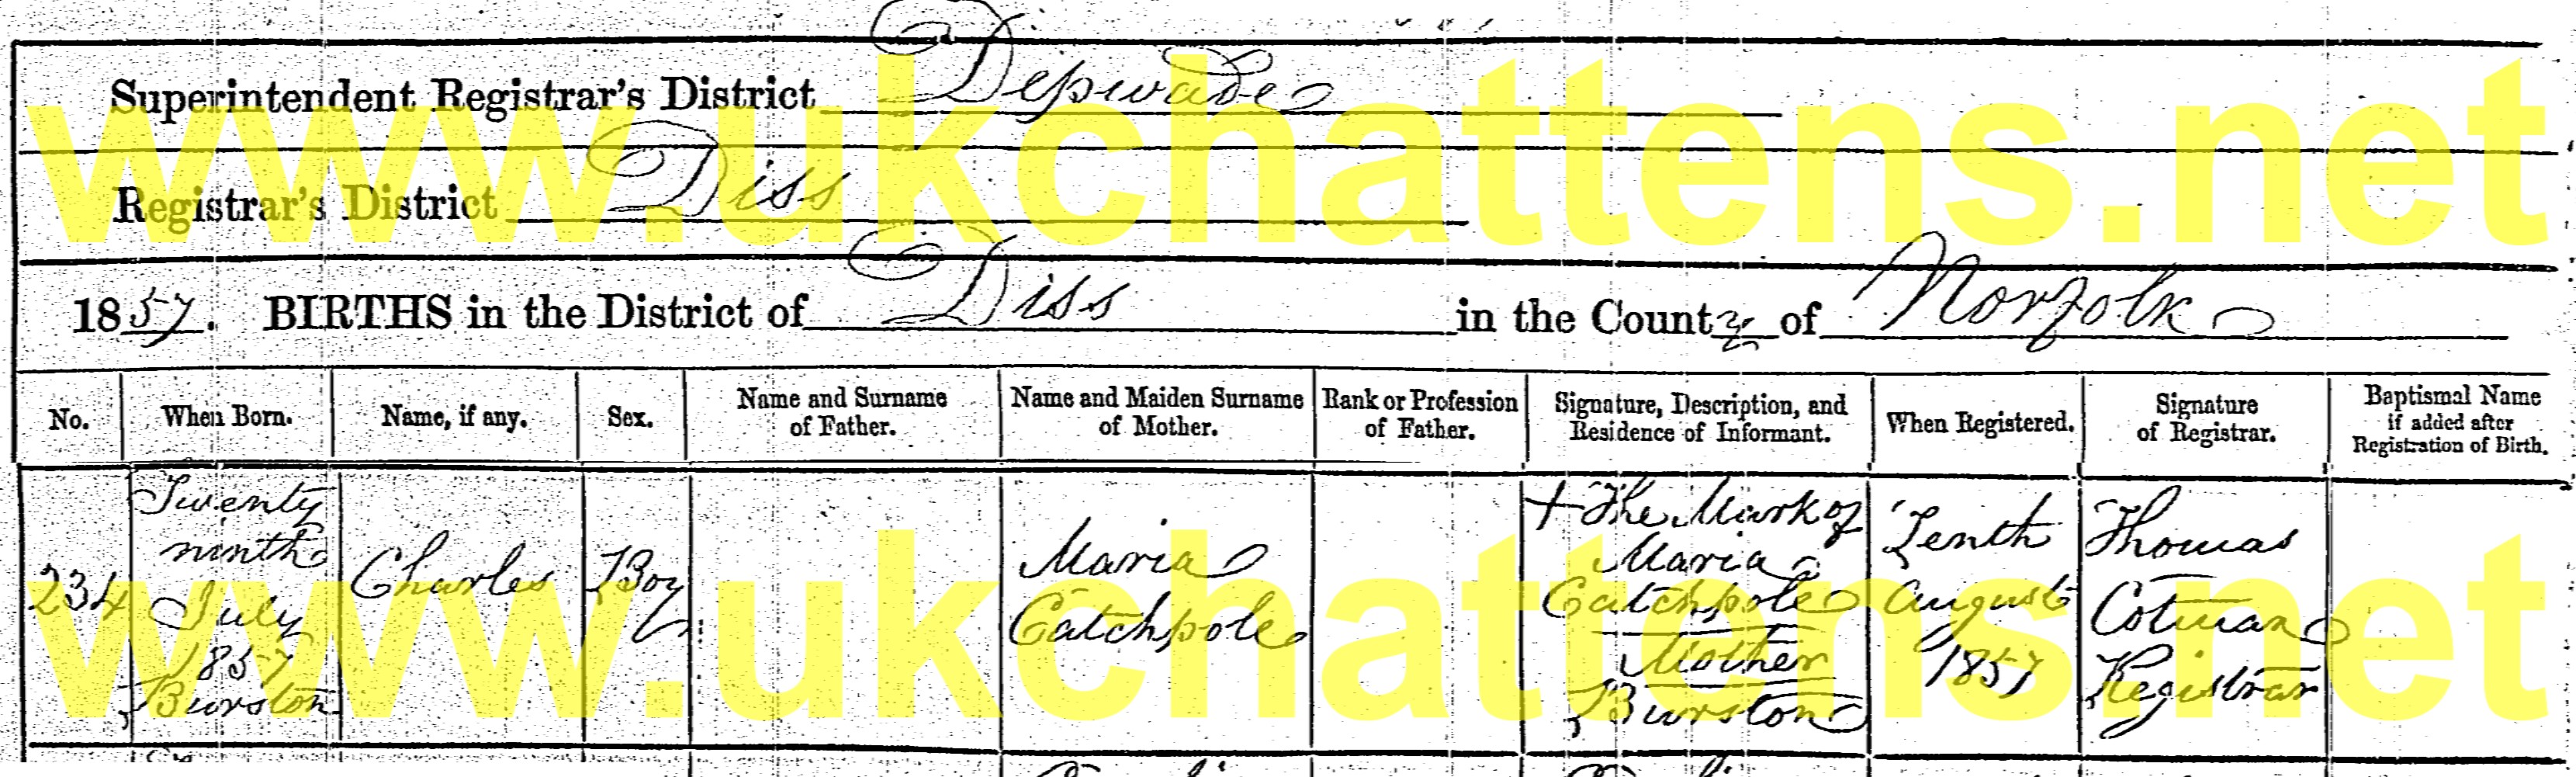 Superintendent Registrar's District Depwade
Registrar's District Diss
1857. BIRTHS in the District of Diss in the County of Norfolk
No. When Born. Name, if any. Sex. Name and Surname of Father. Name and Maiden Surname of Mother. Rank or Profession of Father. Signature, Description, and Residence of Informant. When Registered. Signature of Registrar. Baptismal Name if added after Registration of Birth.
234
Twenty
ninth
July
1857
Burston
Charles
Boy
Maria
Catchpole
+ The Mark of
Maria
Catchpole
Mother
Burston
Tenth
August
1857
Thomas
Cotman
Registrar
www.ukchattens.net
www.ukchattens.net